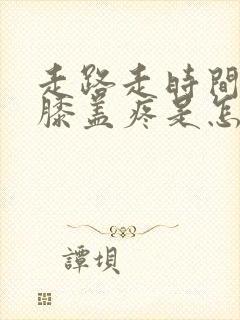 走路走時間
膝盖疼是怎
譚坝